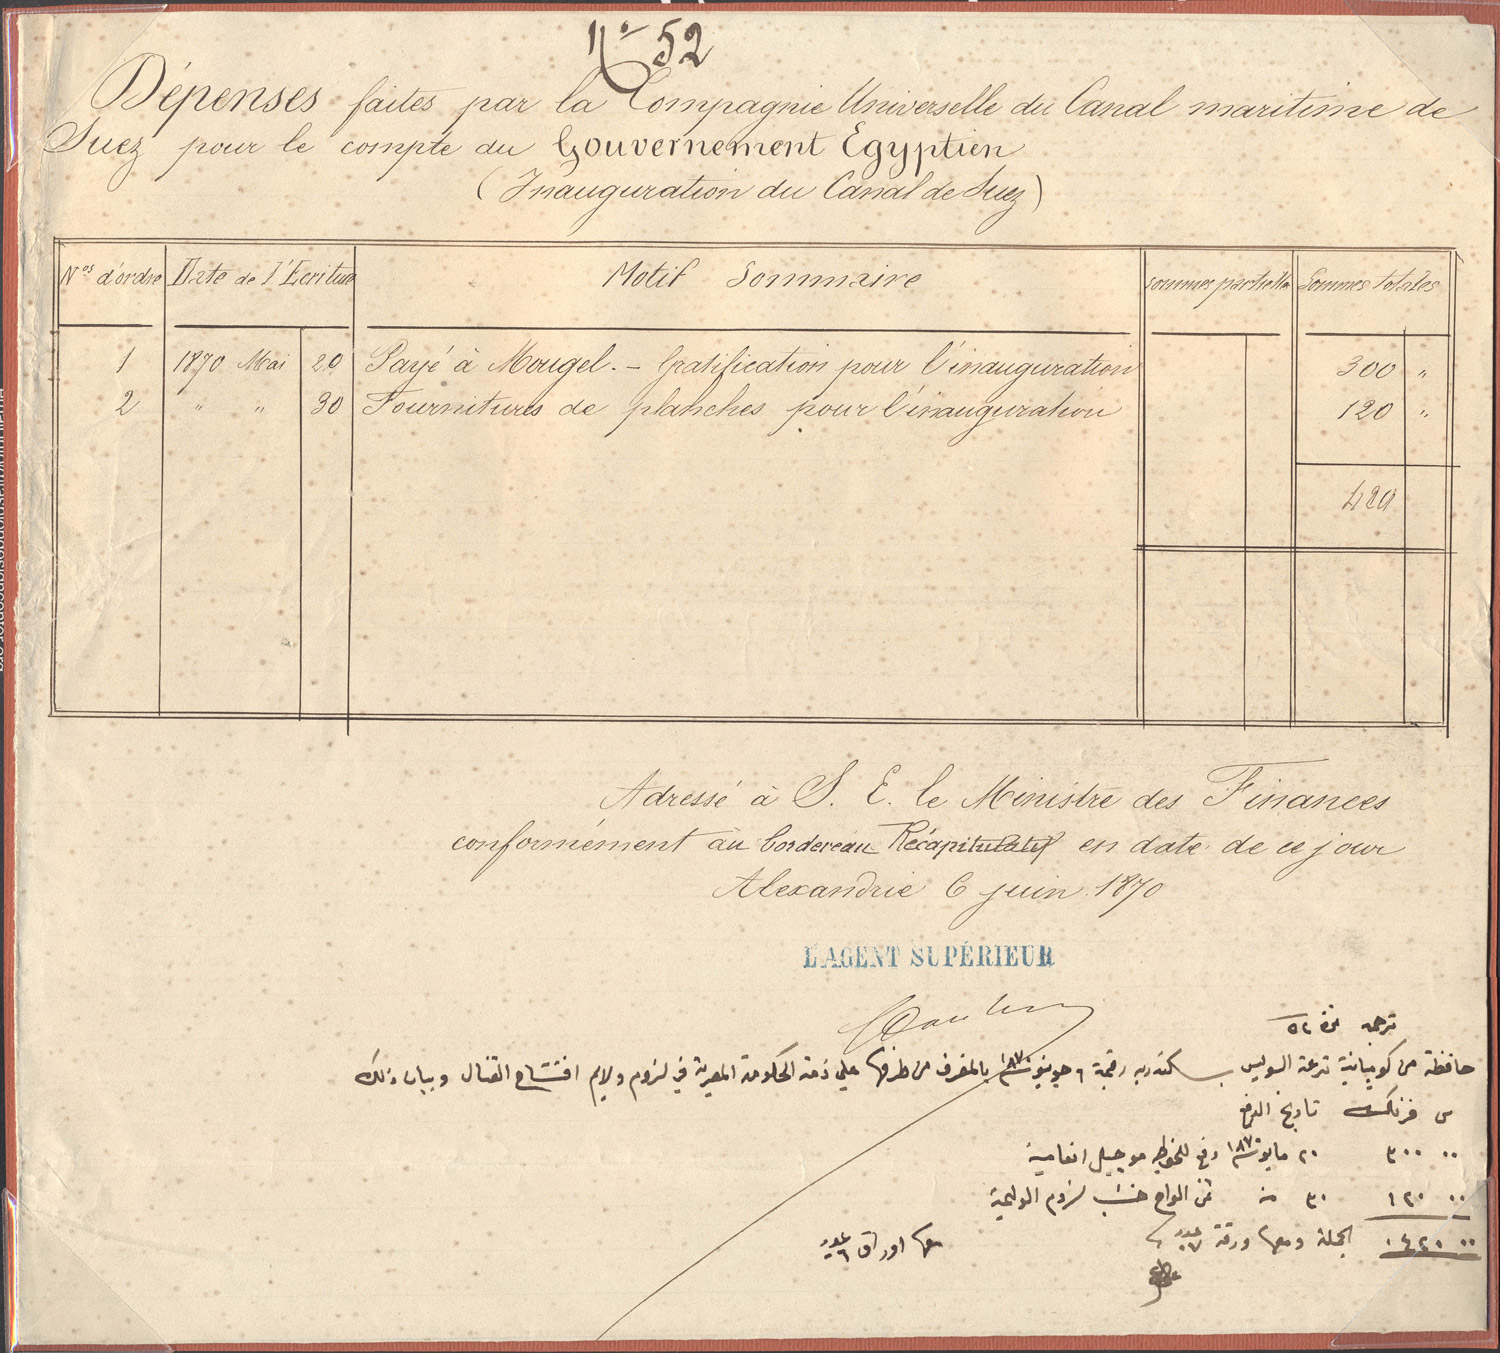 No 52
Dépenses faites par la Compagnie Universelle du Canal maritime de
Suez pour le compte du Gouvernement Egyptien
(Inauguration du Canal de Suez)
Nos d'ordre Date de l'Ecriture Motif Sommaire Sommes partielles Sommes totales
1 1870 Mai 20 Payé à Mougel. - Gratification pour l'inauguration 300 "
2 " " 30 Fournitures de planches pour l'inauguration 120 "
420
Adressé à S. E. le Ministre des Finances
conformément au bordereau Récapitulatif en date de ce jour
Alexandrie 6 juin 1870
L'AGENT SUPÉRIEUR
ترجمة نمرة ٥٢
حافظة من كومبانية ترعة السويس بسكندريه رقيمة ٦ جونيو سنة ١٨٧٠ بالمنصرف من طرفها على ذمة الحكومة المصرية في لزوم ولايم افتتاح القنال وبيان ذلك
س فرنك تاريخ الدفع
٠٠ ٣٠٠ ٢٠ مايو سنة ١٨٧٠ دفع للخواجه موجيل انعامية
٠٠ ١٢٠ ٣٠ منه ثمن الواح خشب لزوم الوليمة
٠٠ ٤٢٠ الجملة ومعها ورقة عدد ٧
معها اوراق عدد ٦